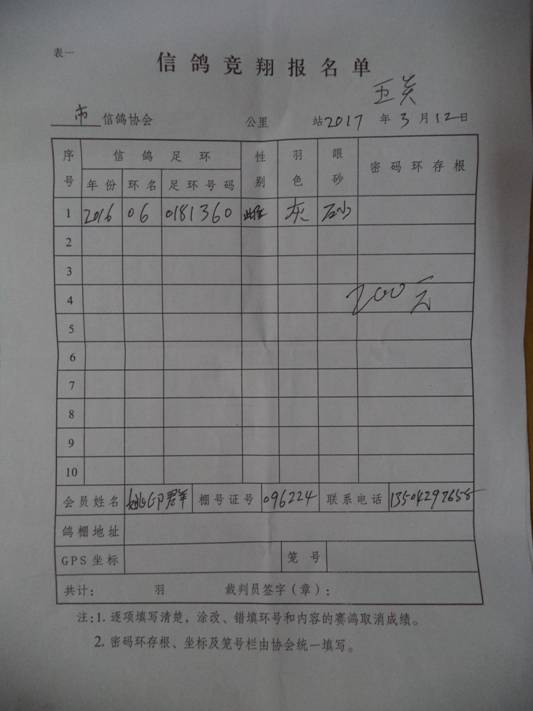 表一
信鸽竞翔报名单
五关
市 信鸽协会 公里 站2017 年 3 月 12 日
序号 信鸽足环 性别 羽色 眼砂 密码环存根
年份 环名 足环号码
1 2016 06 0181360 灰 砂
2
3
4 200元
5
6
7
8
9
10
会员姓名 棚号证号 096224 联系电话 13504297658
鸽棚地址
GPS坐标 笼号
共计: 羽 裁判员签字(章):
注:1. 逐项填写清楚,涂改、错填环号和内容的赛鸽取消成绩。
2. 密码环存根、坐标及笼号栏由协会统一填写。